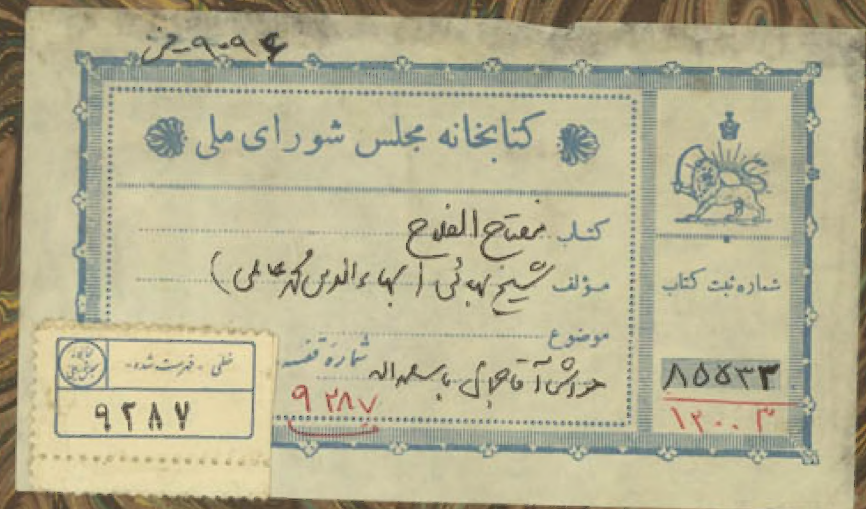 ۹-۹۴ - ف
کتابخانه مجلس شورای ملی
کتاب مفتاح الفلاح
مؤلف شیخ بهائی (بهاءالدین محمد عاملی)
موضوع
شماره قفسه ۹۲۸۷
شماره ثبت کتاب
۸۵۵۳۳
۱۲۰۰۳
خطی - فهرست شده -
۹۲۸۷